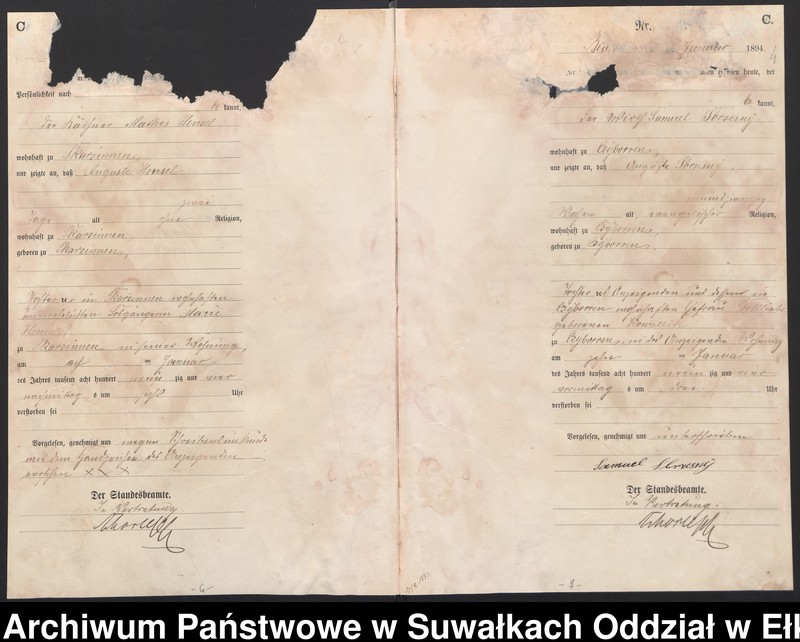 C
Persönlichkeit nach
be kannt,
der Käthner Mathes Hensel
wohnhaft zu Skarzinnen,
und zeigte an, daß Auguste Hensel
zwei
Tage alt ohne Religion,
wohnhaft zu Skarzinnen
geboren zu Skarzinnen,
Tochter der in Skarzinnen wohnhaften
Marie
Hensel
zu Skarzinnen in seiner Wohnung,
am acht Januar
des Jahres tausend acht hundert neun zig und vier
nachmittag s um Uhr
verstorben sei
Vorgelesen, genehmigt und wegen Schreibensunkunde
mit dem Handzeichen des Anzeigenden
versehen XXX
Der Standesbeamte.
In Vertretung
- 6 -
C.
Nr.
Januar 1894
erschien heute, der
be kannt,
der Wirth Samuel
wohnhaft zu Czyborren,
und zeigte an, daß Auguste
Wochen alt, evangelischer Religion,
wohnhaft zu Czyborren,
geboren zu Czyborren,
Tochter des Anzeigenden und dessen in
Czyborren wohnhaften Ehefrau
geborenen
zu Czyborren, in des Anzeigenden Wohnung
am zehn Januar
des Jahres tausend acht hundert neun zig und vier
vormittag s um drei Uhr
verstorben sei
Vorgelesen, genehmigt und unterschrieben
Samuel
Der Standesbeamte.
In Vertretung.
Archiwum Państwowe w Suwałkach Oddział w Eł